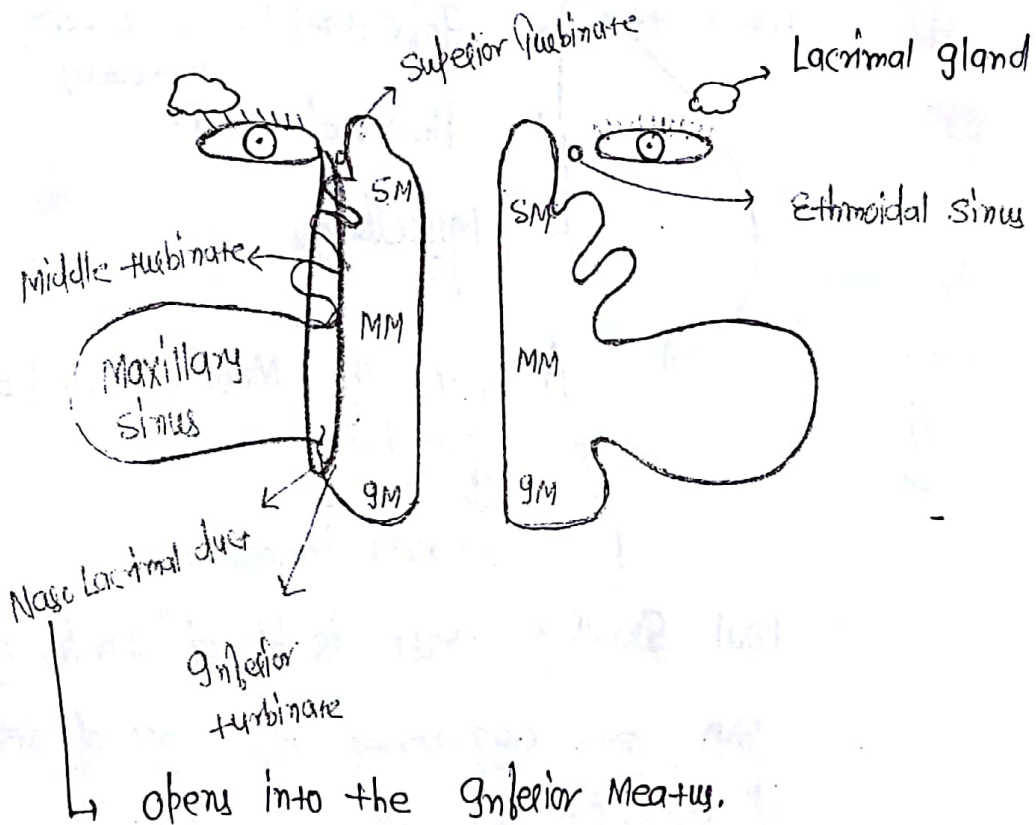 Superior Turbinate
Lacrimal gland
SM
SM
Ethmoidal Sinus
Middle turbinate
MM
MM
Maxillary
Sinus
IM
IM
Naso Lacrimal duct
Inferior
turbinate
↳ opens into the Inferior Meatus.